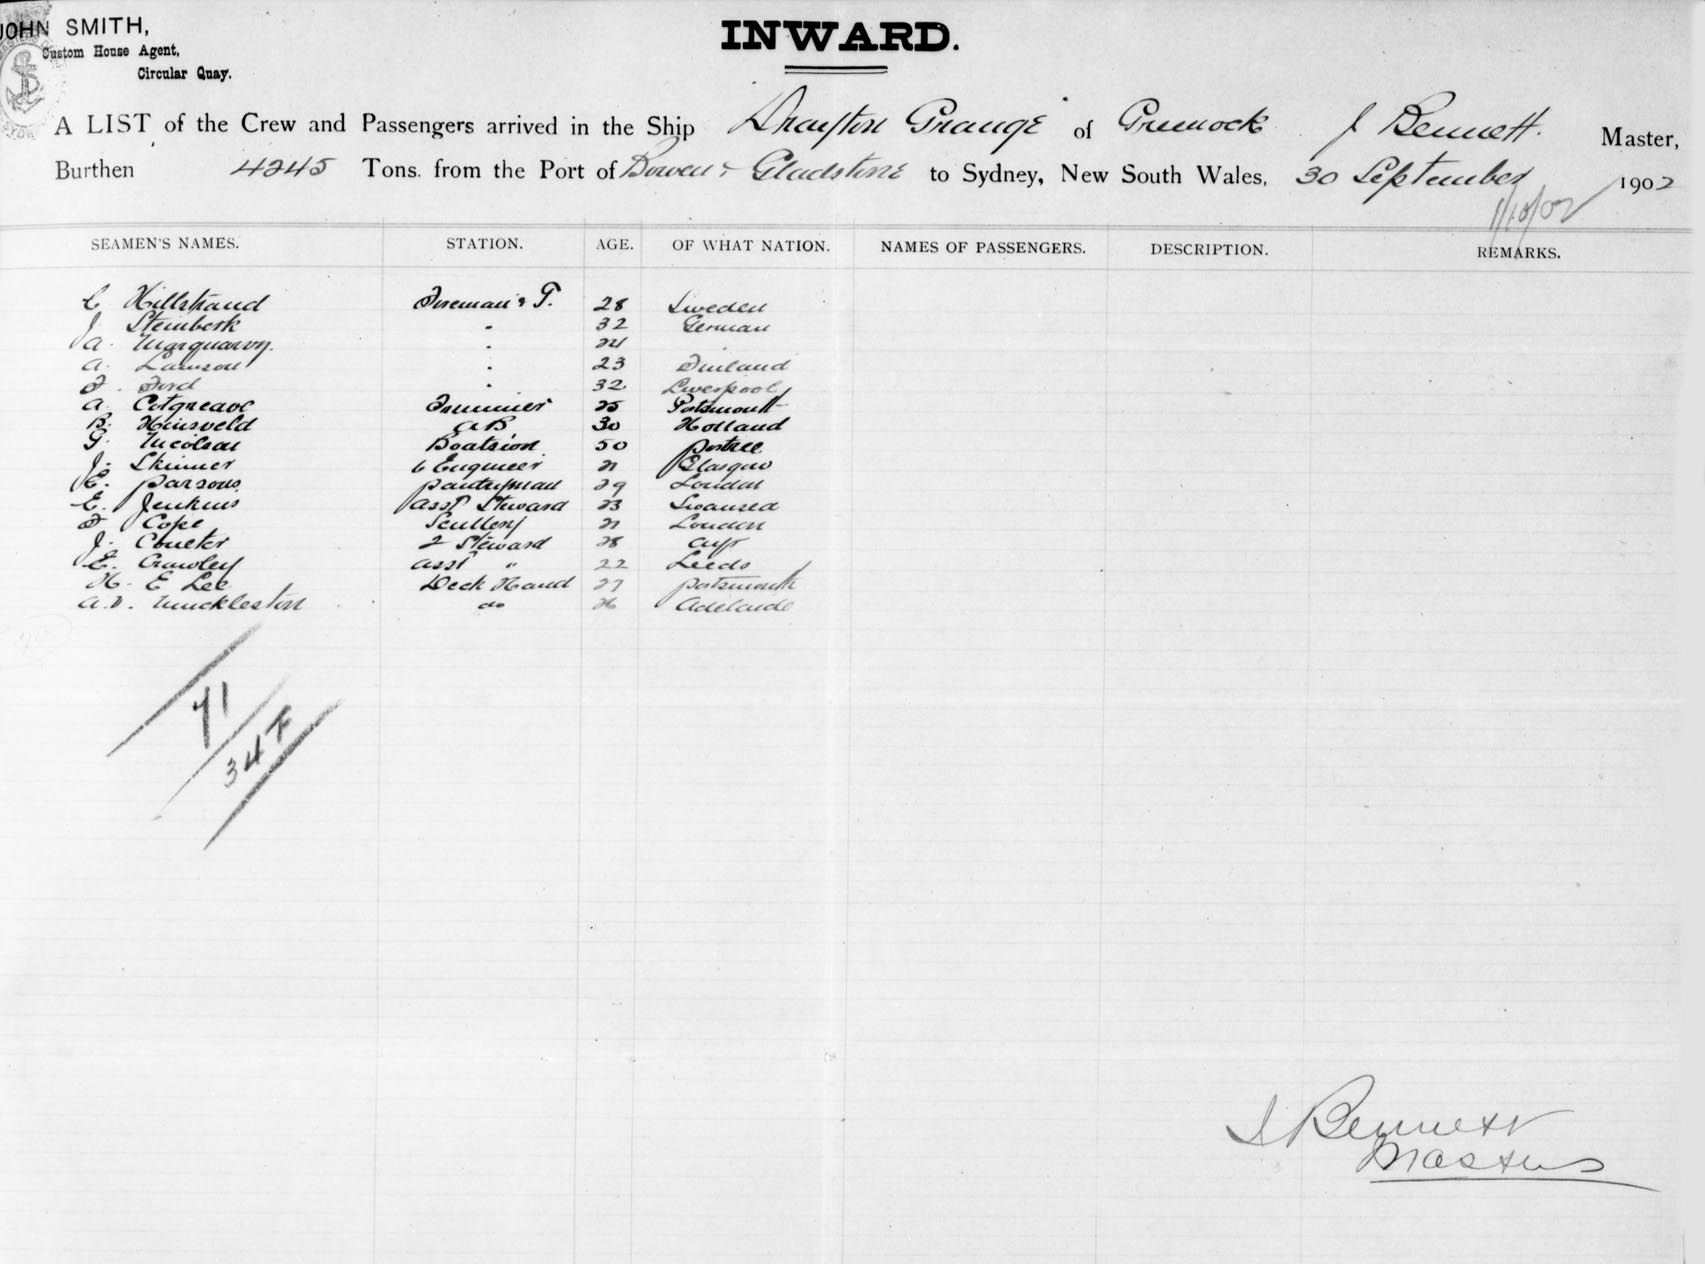 JOHN SMITH,
Custom House Agent,
Circular Quay.
INWARD.
A LIST of the Crew and Passengers arrived in the Ship Drayton Grange of Greenock J Bennett. Master,
Burthen 4245 Tons. from the Port of Bowen & Gladstone to Sydney, New South Wales, 30 September 1902
1/10/02
SEAMEN'S NAMES. STATION. AGE. OF WHAT NATION. NAMES OF PASSENGERS. DESCRIPTION. REMARKS.
C Hillstrand Fireman & T. 28 Sweden
J. Steinberk " 32 German
A. "
A. Lawson " 23 Finland
F. Ford " 32 Liverpool
A. Cotgreave Trimmer 25 Portsmouth
B. Heinsveld AB 30 Holland
G. Nicolson Boatsion 50 Portree
J. Skinner 6 Engineer 21 Glasgow
E. Parsons Pantryman 29 London
E. Jenkins Asst Steward 23 Swansea
F Cope Scullery 21 London
J. Coulter 2 Steward 28 Ayr
E. Crawley Asst " 22 Leeds
H. E Lee Deck Hand 27 Portsmouth
A.V. Muckleston do 26 Adelaide
71
34 F
J Bennett
Master